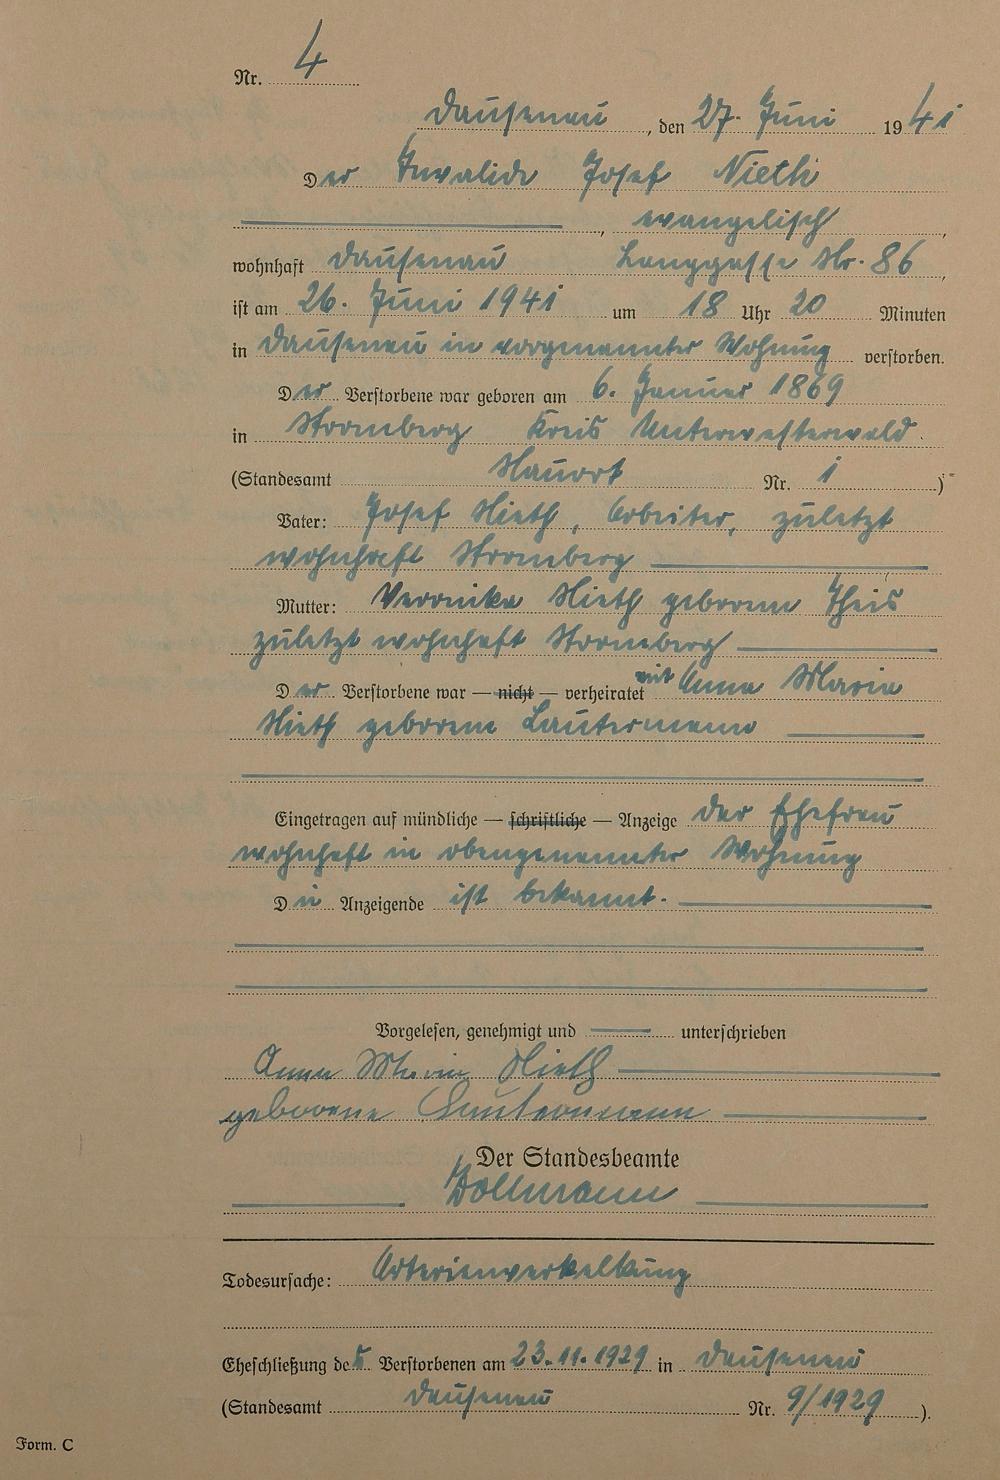 Nr. 4
Dausenau, den 27. Juni 1941
Der Invalide Josef Nieth
, evangelisch,
wohnhaft Dausenau Langgasse Nr. 86,
ist am 26. Juni 1941 um 18 Uhr 20 Minuten
in Dausenau in vorgenannter Wohnung verstorben.
Der Verstorbene war geboren am 6. Januar 1869
in Stromberg Kreis Unterwesterwald.
(Standesamt Nauort Nr. 1)
Vater: Josef Nieth, Arbeiter, zuletzt
wohnhaft Stromberg
Mutter: Veronika Nieth geborene Theis
zuletzt wohnhaft Stromberg
Der Verstorbene war — nicht — verheiratet mit Anna Maria
Nieth geborene Lautermann
Eingetragen auf mündliche — schriftliche — Anzeige der Ehefrau
wohnhaft in obengenannter Wohnung
Die Anzeigende ist bekannt.
Vorgelesen, genehmigt und unterschrieben
Anna Maria Nieth
geborene Lautermann
Der Standesbeamte
Todesursache: Arterienverkalkung
Eheschließung des Verstorbenen am 23.11.1929 in Dausenau
(Standesamt Dausenau Nr. 9/1929).
Form. C